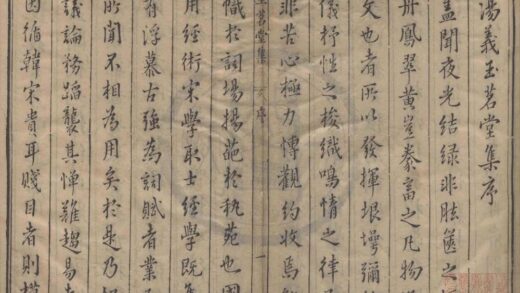 湯義玉茗堂集序
蓋聞夜光結綠非胠篋之
丹鳳翠黃豈豢畜之凡物
文也者所以發揮垠堮彌
儀抒性之梭織鳴情之律
非苦心極力博觀約收焉
玉茗堂集 文序 一
幟於詞場揚葩於執苑也
用經術宋學取士經學既
有浮慕古強為詞賦者業
所聞不相為用矣於是乃
議論務蹈襲其憚難趨易
因循韓宋貴耳賤目者則